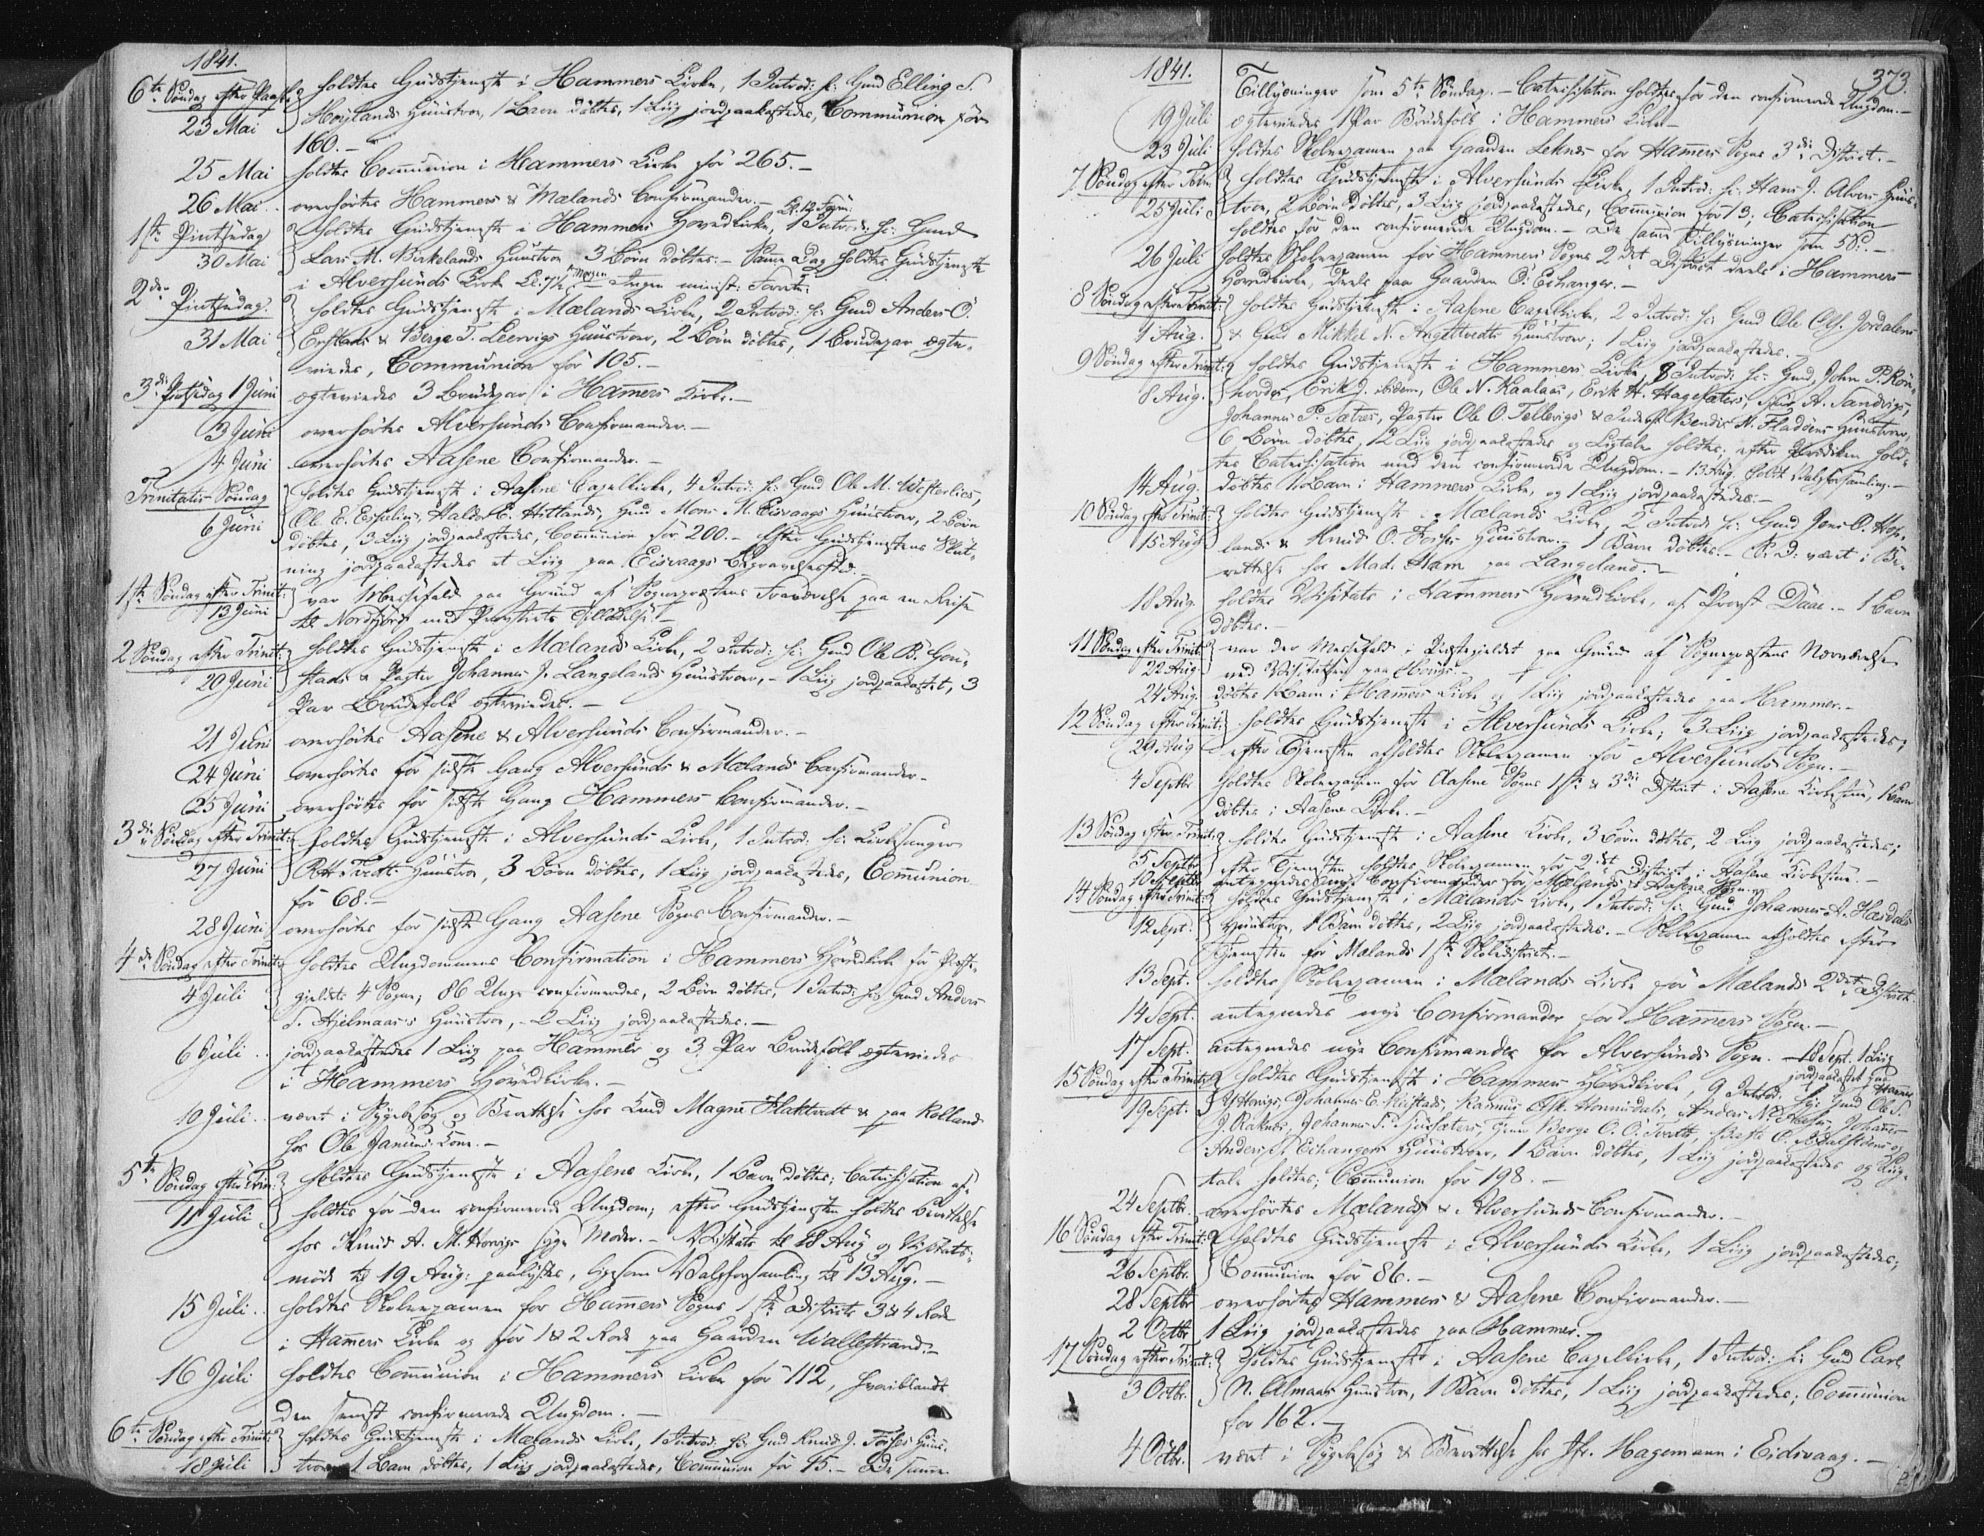 1841.
6te Søndag efter Paaske holdtes Gudstjeneste i Hammers Kirke, 1 Introd: s: Gmd Elling S.
23 Mai Høylands Huustroe, 1 Barn døbtes, 1 Liig jordpaakastedes, Communion for
160.-
25 Mai holdtes Communion i Hammers Kirke for 265.-
26 Mai overhørtes Hammers & Mælands Confirmander.-
1ste Pintsedag holdtes Gudstjeneste i Hammers Hovedkirke, 1 Introd: s: Gmd
30 Mai Lars M. Birkelands Huustroe, 3 Børn døbtes.- Samme Dag holdtes Gudstjeneste
i Alversunds Kirke Kl. 7½ Morgen Ingen minist: Forret:
2den Pintsedag holdtes Gudstjeneste i Mælands Kirke, 2 Introd: s: Gmd Anders O.
31 Mai & Berge T. Leervigs Huustroer, 2 Børn døbtes, 1 Brudepar ægte-
viedes, Communion for 105.-
3die Pintsedag 1 Juni ægteviedes 3 Brudepar i Hammers Kirke.-
3 Juni overhørtes Alversunds Confirmander.-
4 Juni overhørtes Aasene Confirmander.-
Trinitatis Søndag holdtes Gudstjeneste i Aasene Capelkirke, 4 Introd: s: Gmd Ole M. Westerlies,
6 Juni Ole E. Haldor E. Hitlands, Gmd Mons M. Eisvaags Huustroer, 2 Børn
døbtes, 3 Liig jordpaakastedes, Communion for 200.- Efter Gudstjenestens Slut-
ning jordpaakastedes et Liig paa Eisvaags Begravelsested.
1ste Søndag efter Trinit: var Messefald paa Grund af Sognepræstens Fraværelse paa en Reise
13 Juni til Nordfjord med Provstens Tilladelse.-
2 Søndag efter Trinit: holdtes Gudstjeneste i Mælands Kirke, 2 Introd: s: Gmd Ole B.
20 Juni & Pagter Johannes J. Langelands Huustroer,- 1 Liig jordpaakastet, 3
Par Brudefolk ægteviedes.-
21 Juni overhørtes Aasene & Alversunds Confirmander.-
24 Juni overhørtes for sidste Gang Alversunds & Mælands Confirmander.-
25 Juni overhørtes for sidste Gang Hammers Confirmander.-
3die Søndag efter Trinit: holdtes Gudstjeneste i Alversunds Kirke, 1 Introd: s: Kirkesanger
27 Juni Huustroe, 3 Børn døbtes, 1 Liig jordpaakastedes, Communion
for 68.-
28 Juni overhørtes for sidste Gang Aasene Sogns Confirmander.-
4de Søndag efter Trinit: holdtes Ungdommens Confirmation i Hammers Hovedkirke for Præste-
4 Juli gjeldets 4 Sogne; 86 Unge confirmeredes, 2 Børn døbtes, 1 Introd: s: Gmd Anders
S. Hjelmaas's Huustroe,- 2 Liig jordpaakastedes.-
6 Juli jordpaakastedes 1 Liig paa Hammer og 3 Par Brudefolk ægteviedes
i Hammers Hovedkirke.-
10 Juli været i Sygebesøg og Berettelse hos Gmd Magne & paa Rolland
hos Ole Jansens Kone.-
5te Søndag efter Trin: holdtes Gudstjeneste i Aasene Kirke, 1 Barn døbtes; Catechisation af-
11 Juli holdtes for den confirmerede Ungdom; efter Gudstjenesten holdtes Berettelse
hos Knud A. M. syge Moder.- Visitats til 18 Aug og Visitats-
møde til 19 Aug: paalystes, ligesom Valgforsamling til 13 Aug.-
15 Juli holdtes Skoleexamen for Hammers Sogns 1ste District 3 & 4 Rode
i Hammers Kirke og for 1 & 2 Rode paa Gaarden Wallestrand.-
16 Juli holdtes Communion i Hammers Kirke for 112, hvoriblandt
den senest confirmerede Ungdom.-
6te Søndag efter Trinit: holdtes Gudstjeneste i Mælands Kirke, 1 Introd: s: Gmd Knud J. Huus-
18 Juli troe, 1 Barn døbtes, 1 Liig jordpaakastedes, Communion for 45.- De samme
1841. 373.
Tillysninger som 5te Søndag.- Catechisation holdtes for den confirmerede Ungdom.-
19 Juli ægteviedes 1 Par Brudefolk i Hammers Kirke
23 Juli holdtes Skoleexamen paa Gaarden Leknes for Hammers Sogns 3die District.-
7 Søndag efter Trin. holdtes Gudstjeneste i Alversunds Kirke, 1 Introd: s: Hans J. Alvers Huus-
25 Juli troe, 2 Børn døbtes, 3 Liig jordpaakastedes, Communion for 13; Catechisation
holdtes for den confirmerede Ungdom.- De samme Tillysninger som 5 S:.-
26 Juli holdtes Skoleexamen for Hammers Sogns 2det District deels i Hammers
Hovedkirke, deels paa Gaarden Ø. Echanger.-
8 Søndag efter Trinit: holdtes Gudstjeneste i Aasene Capelkirke, 2 Introd: s: Gmd Ole Jordalens
1 Aug. & Gmd Mikkel N. Huustroer; 1 Liig jordpaakastedes.-
9 Søndag efter Trinit: holdtes Gudstjeneste i Hammers Kirke, 8 Introd: s: Gmd, John P. Røn-
8 Aug. hovde, Erik J. ibidem, Ole N. Kaalaas, Erik H. Hagesæters, A. Sandvigs,
Johannes P. Sætres, Pagter Ole O. Tellevigs & Inderst Bendix N. Fladøens Huustroer,
6 Børn døbtes, 12 Liig jordpaakastedes og Ligtale holdtes; efter Prædiken hold-
tes Catechisation med den confirmerede Ungdom.- 13 Aug. holdt Valgforsamling.-
14 Aug. døbtes 1 Barn i Hammers Kirke, og 1 Liig jordpaakastedes.-
10 Søndag efter Trinit: holdtes Gudstjeneste i Mælands Kirke, 2 Introd: s: Gmd Jens O. Hop-
15 Aug. lands & Knud O. Huustroer.- 1 Barn døbtes.- S. D. været i Be-
rettelse hos Mad. Ham paa Langeland.-
18 Aug. holdtes Visitats i Hammers Hovedkirke, af Provst Daae.- 1 Barn
døbtes.-
11 Søndag efter Trinit: var der Messefald i Præstegjeldet paa Grund af Sognepræstens Nærværelse
22 Aug. ved Visitatsen paa
24 Aug. døbtes 1 Barn i Hammers Kirke og 1 Liig jordpaakastedes paa Hammer.-
12 Søndag efter Trinit: holdtes Gudstjeneste i Alversunds Kirke; 3 Liig jordpaakastedes;
29 Aug efter Tjenesten afholdtes Skoleexamen for Alversunds Sogn.-
4 Septbr holdtes Skoleexamen for Aasene Sogns 1ste & 3die District i Aasene Kirkestue, 1 Barn
døbtes i Aasene Kirke.-
13 Søndag efter Trinit: holdtes Gudstjeneste i Aasene Kirke, 3 Børn døbtes, 2 Liig jordpaakastedes;
5 Septbr efter Tjenesten holdtes Skoleexamen for 2det District i Aasene Kirkestue.-
10 Septbr antegnedes nye Confirmander for Mælands & Aasene Sogne.
14 Søndag efter Trinit: holdtes Gudstjeneste i Mælands Kirke, 1 Introd: s: Gmd Johannes A. Hasdals
12 Sept. Huustroe, 1 Barn døbtes, 2 Liig jordpaakastedes.- Skoleexamen afholdtes efter
Tjenesten for Mælands 1ste Skoledistrict.-
13 Sept. holdtes Skoleexamen i Mælands Kirke for Mælands 2det District
14 Sept. antegnedes nye Confirmander for Hammers Sogn.-
17 Sept. antegnedes nye Confirmander for Alversunds Sogn.- 18 Sept. 1 Liig
jordpaakastet paa Hammer
15 Søndag efter Trinit: holdtes Gudstjeneste i Hammers Hovedkirke, 9 Introd. s: Gmd Ole S.
19 Sept. Johannes E. Rasmus Anders N. Johannes
J. Raknes, Johannes P. Gmd Berge O. O. Tveits, &
Anders J. Echangers Huustroer, 1 Barn døbtes, 1 Liig jordpaakastedes og Liig-
tale holdtes; Communion for 198.-
24 Septbr. overhørtes Mælands & Alversunds Confirmander.-
16 Søndag efter Trinit: holdtes Gudstjeneste i Alversunds Kirke, 1 Liig jordpaakastedes;
26 Septbr. Communion for 86.-
28 Septbr overhørtes Hammers & Aasene Confirmander.-
2 Octbr 1 Liig jordpaakastedes paa Hammer.-
17 Søndag efter Trinit: holdtes Gudstjeneste i Aasene Capelkirke, 1 Introd: s: Gmd Carl
3 Octbr. N. Almaas Huustroe, 1 Barn døbtes, 1 Liig jordpaakastedes; Communion
for 162.-
4 Octbr. været i Sygebesøg & Berettelse hos Hagemann i Eidsvaag.-